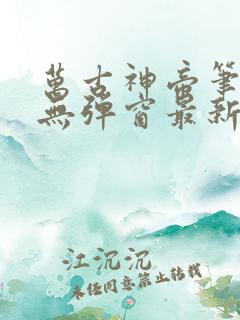 萬古神帝筆
無彈窗最新
江沉沉
未经同意禁止转载